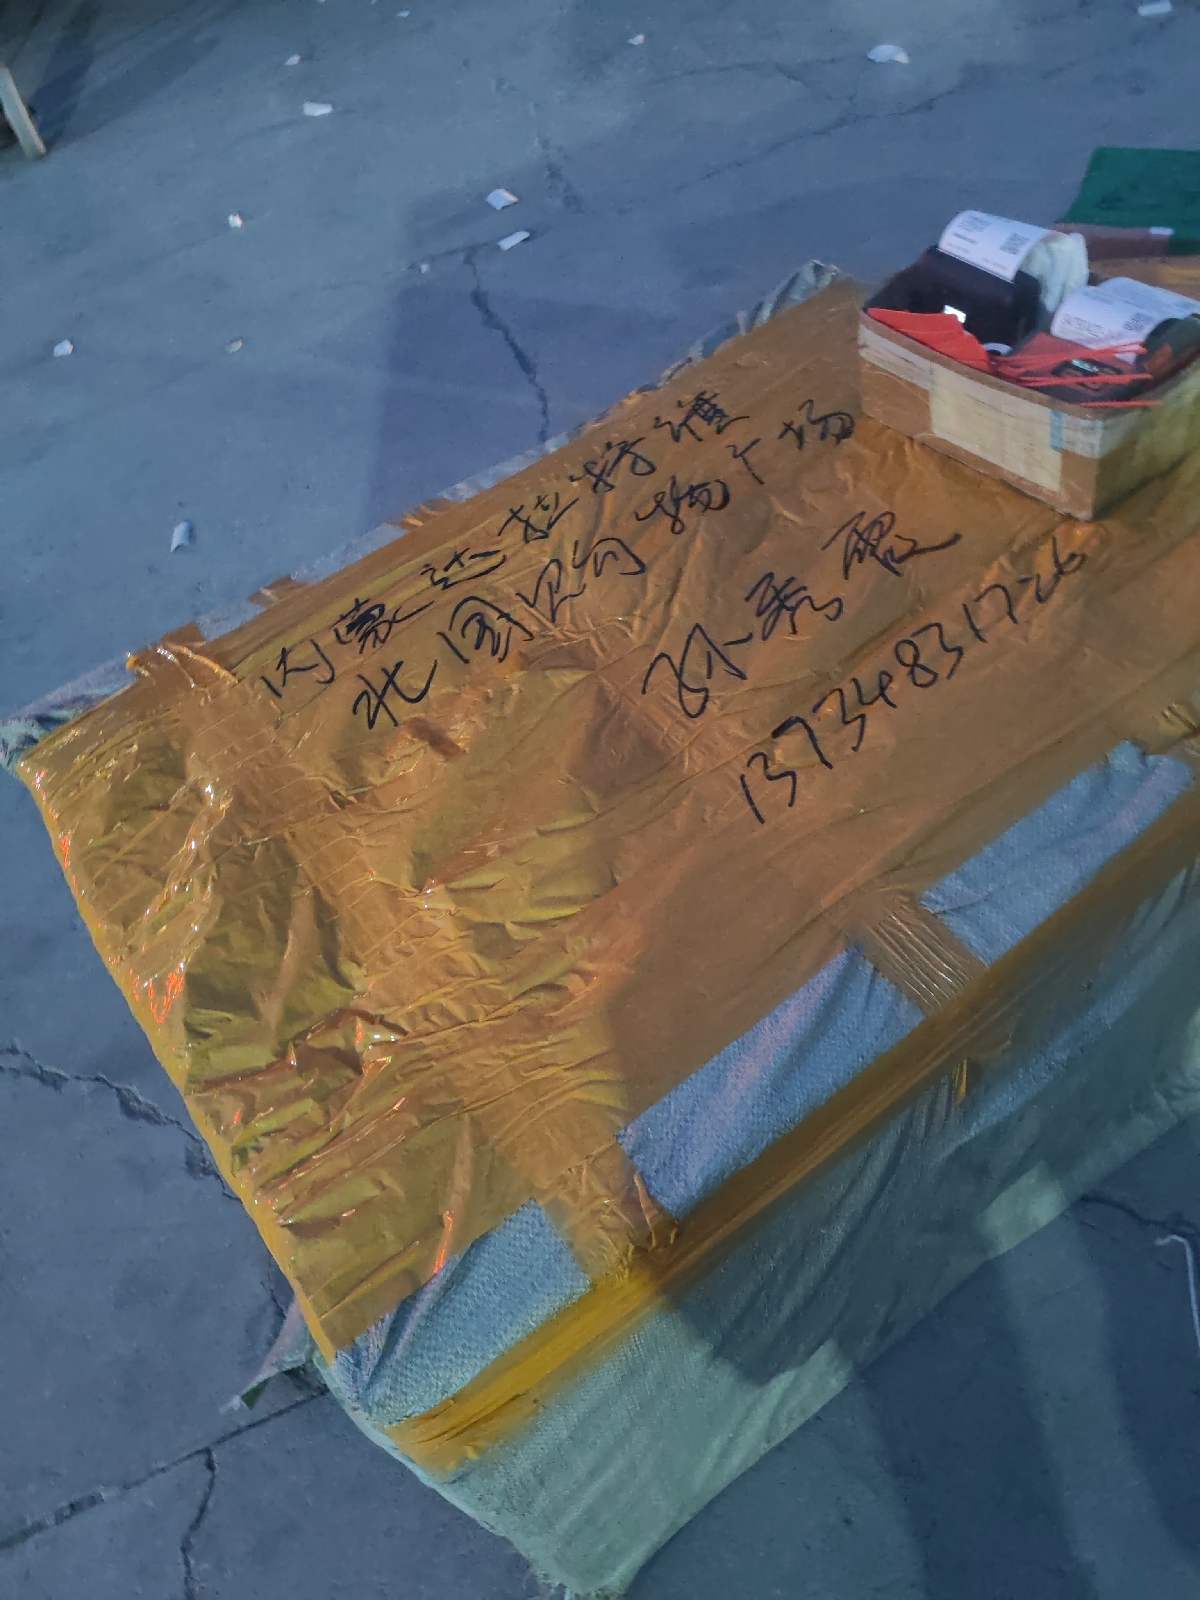 内蒙达拉特淮
北国贝勾物广场
孙秀霞
13734831726